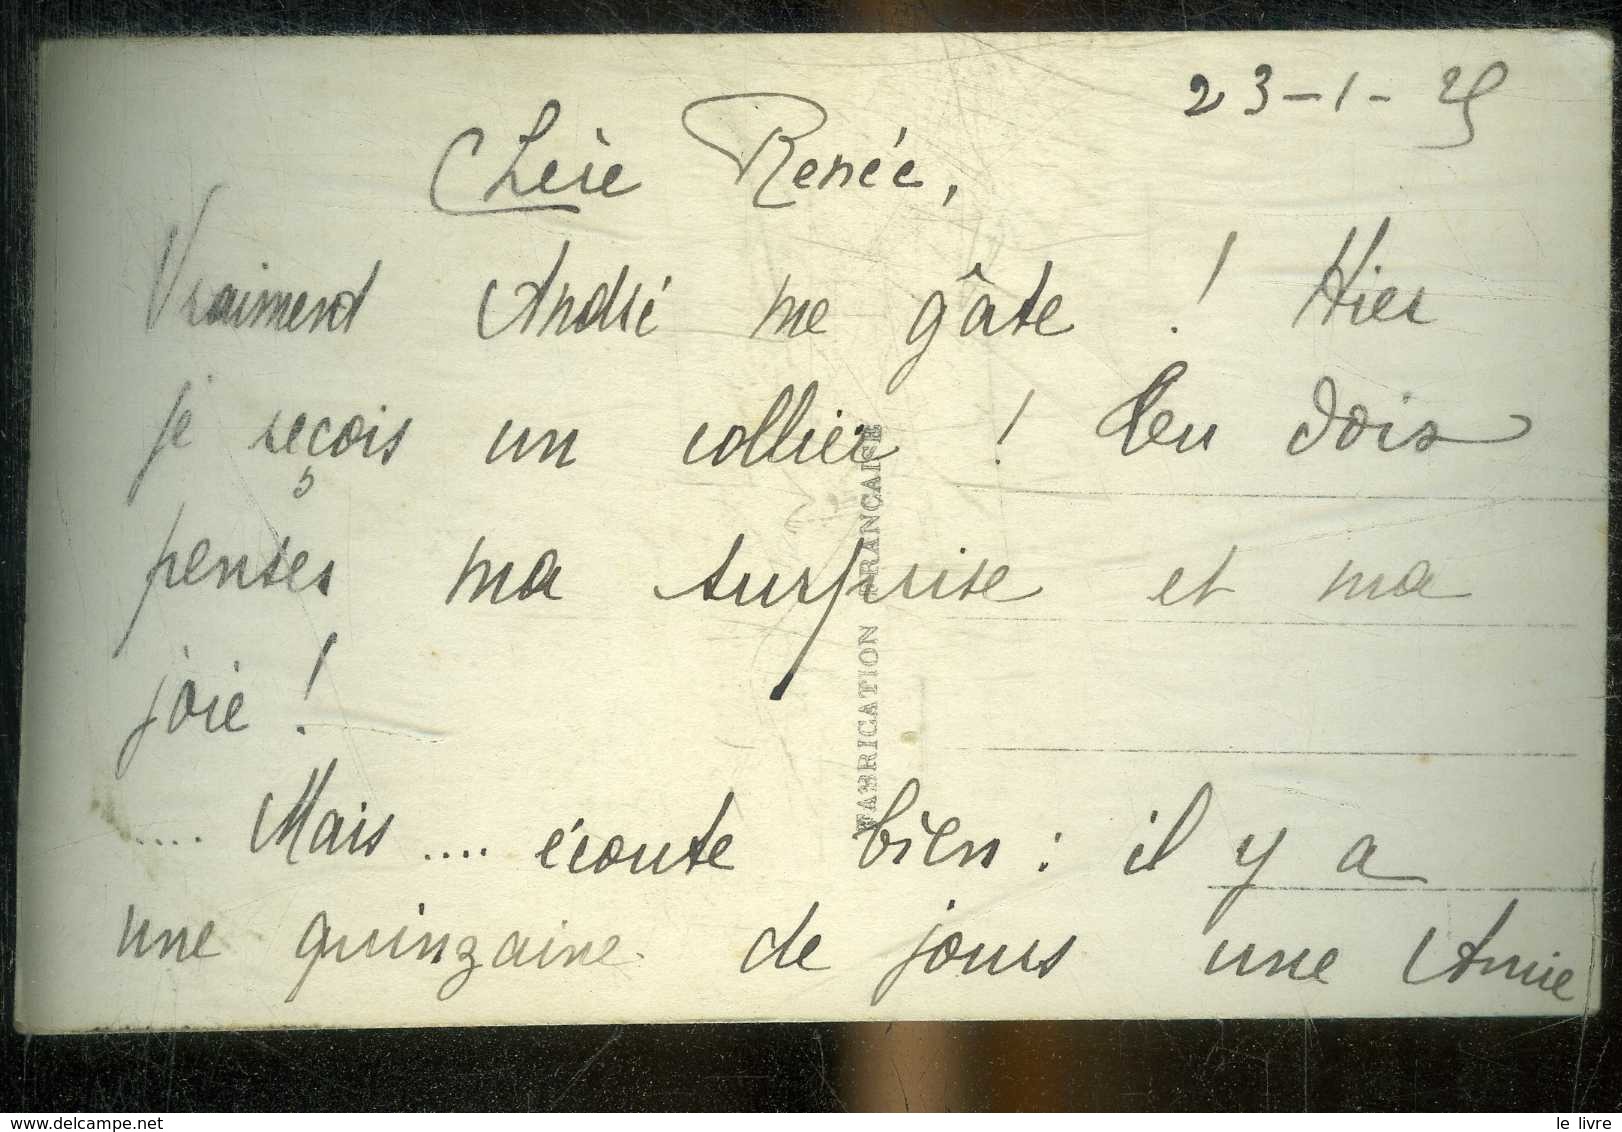 23-1-25
Chère Renée,
Vraiment André me gâte ! Hier
je reçois un collier ! Tu dois
penser ma surprise et ma
joie !
.... Mais .... écoute bien : il y a
une quinzaine de jours une Amie
FABRICATION FRANCAISE
www.delcampe.net
le livre